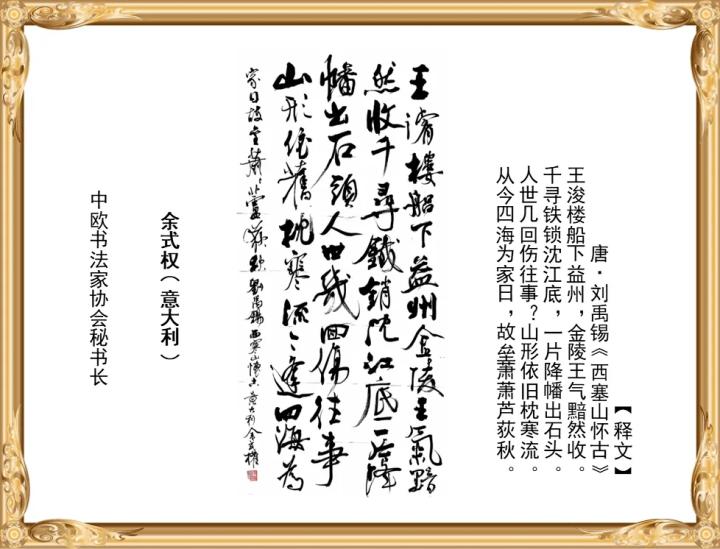 【释文】
唐·刘禹锡《西塞山怀古》
王浚楼船下益州，金陵王气黯然收。
千寻铁锁沈江底，一片降幡出石头。
人世几回伤往事？山形依旧枕寒流。
从今四海为家日，故垒萧萧芦荻秋。
王濬樓船下益州金陵王氣黯
然收千尋鐵鎖沈江底一降
幡出石頭人世幾回傷往事
山形依舊枕寒流今逢四海為
家日故壘蕭蕭蘆荻秋劉禹錫西塞山懷古意大利余式權
余式权（意大利）
中欧书法家协会秘书长